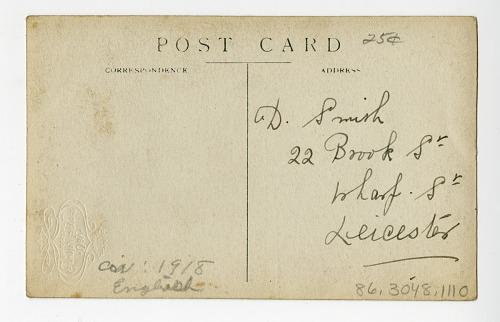 POST CARD
25¢
CORRESPONDENCE
ADDRESS
D. Smith
22 Brook St
Wharf. St
Leicester
cir: 1918
English
86.3048.1110